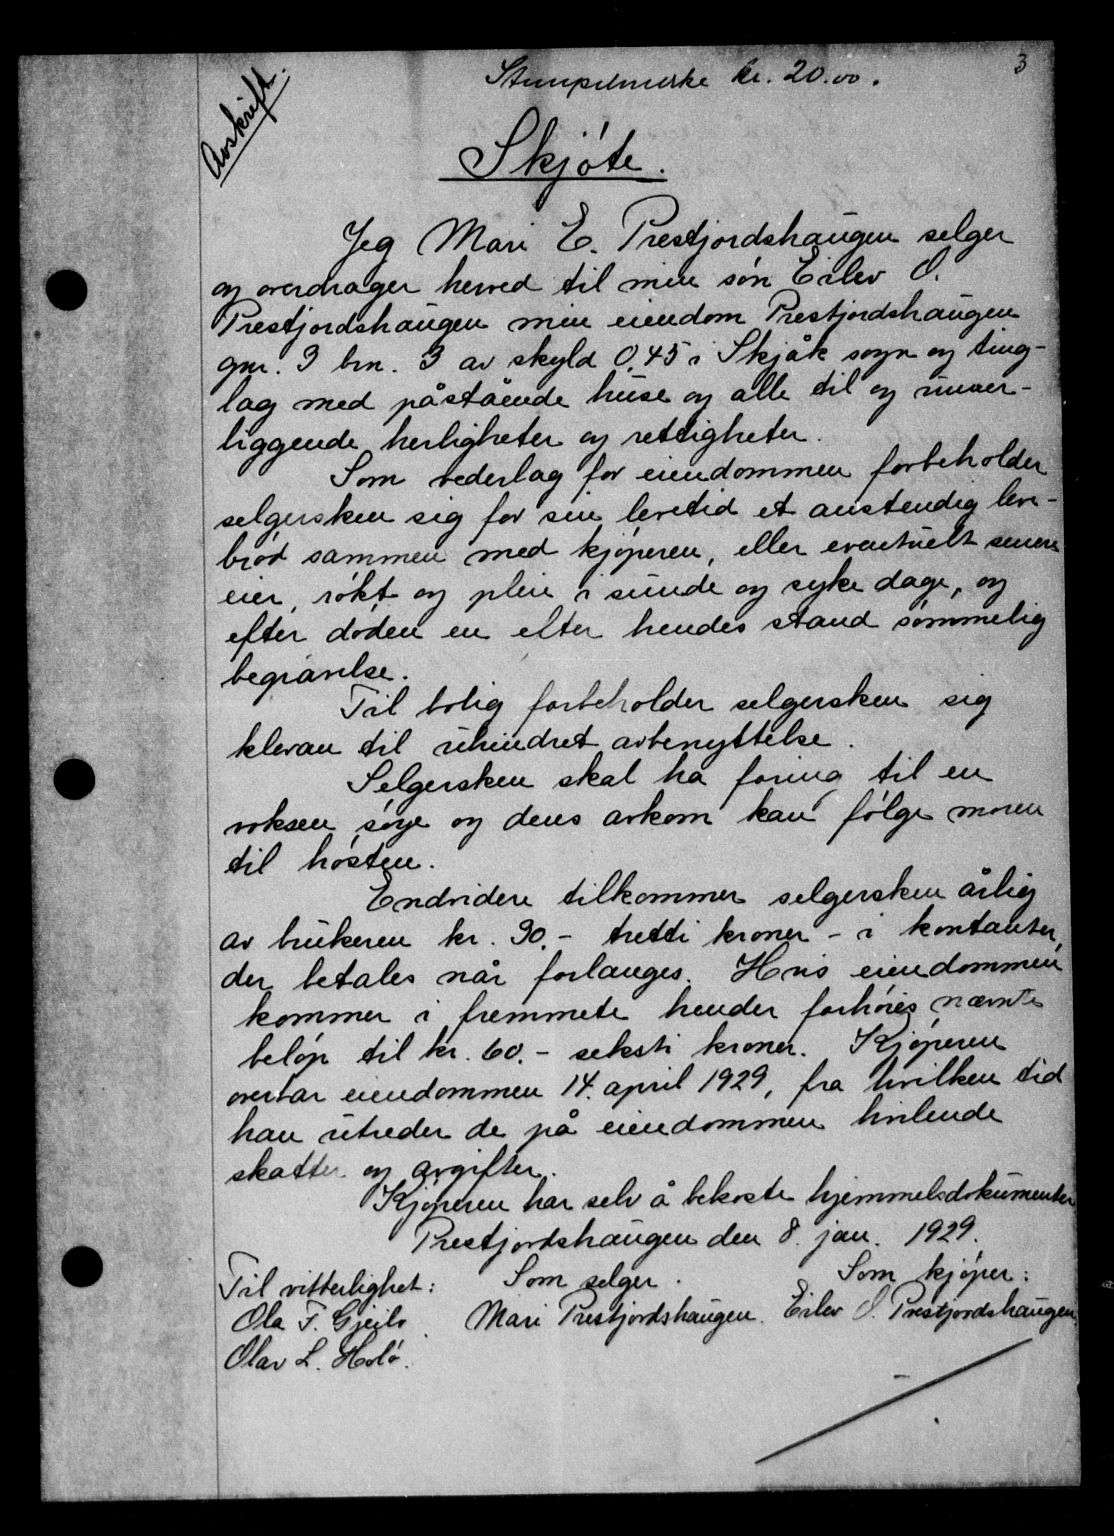 3
Stempelmerke kr. 20.00.
Avskrift.
Skjøte.
Jeg Mari E. Prestjordshaugen selger
og overdrager herved til min søn Eilev O.
Prestjordshaugen min eiendom Prestjordshaugen
gnr. 3 bnr. 3 av skyld 0,45 i Skjåk sogn og ting-
lag med påstående huse og alle til og under-
liggende herligheter og rettigheter.
Som vederlag for eiendommen forbeholder
selgersken sig for sin levetid et anstendig leve-
brød sammen med kjøperen, eller eventuelt senere
eier, røkt og pleie i sunde og syke dage, og
efter døden en efter hendes stand sømmelig
begravelse.
Til bolig forbeholder selgersken sig
klevan til uhindret avbenyttelse.
Selgersken skal ha foring til en
voksen søye og dens avkom kan følge moren
til høsten.
Endvidere tilkommer selgersken årlig
av brukeren kr. 30.- tretti kroner - i kontanter,
der betales når forlanges. Hvis eiendommen
kommer i fremmete hender forhøies nævnte
beløp til kr. 60.- seksti kroner. Kjøperen
overtar eiendommen 14. april 1929, fra hvilken tid
han utreder de på eiendommen hvilende
skatter og avgifter.
Kjøperen har selv å bekoste hjemmelsdokumenter
Prestjordshaugen den 8. jan. 1929.
Til vitterlighet: Som selger. Som kjøper:
Ola T. Gjeilo. Mari Prestjordshaugen. Eilev O. Prestjordshaugen.
Olav L. Holø.